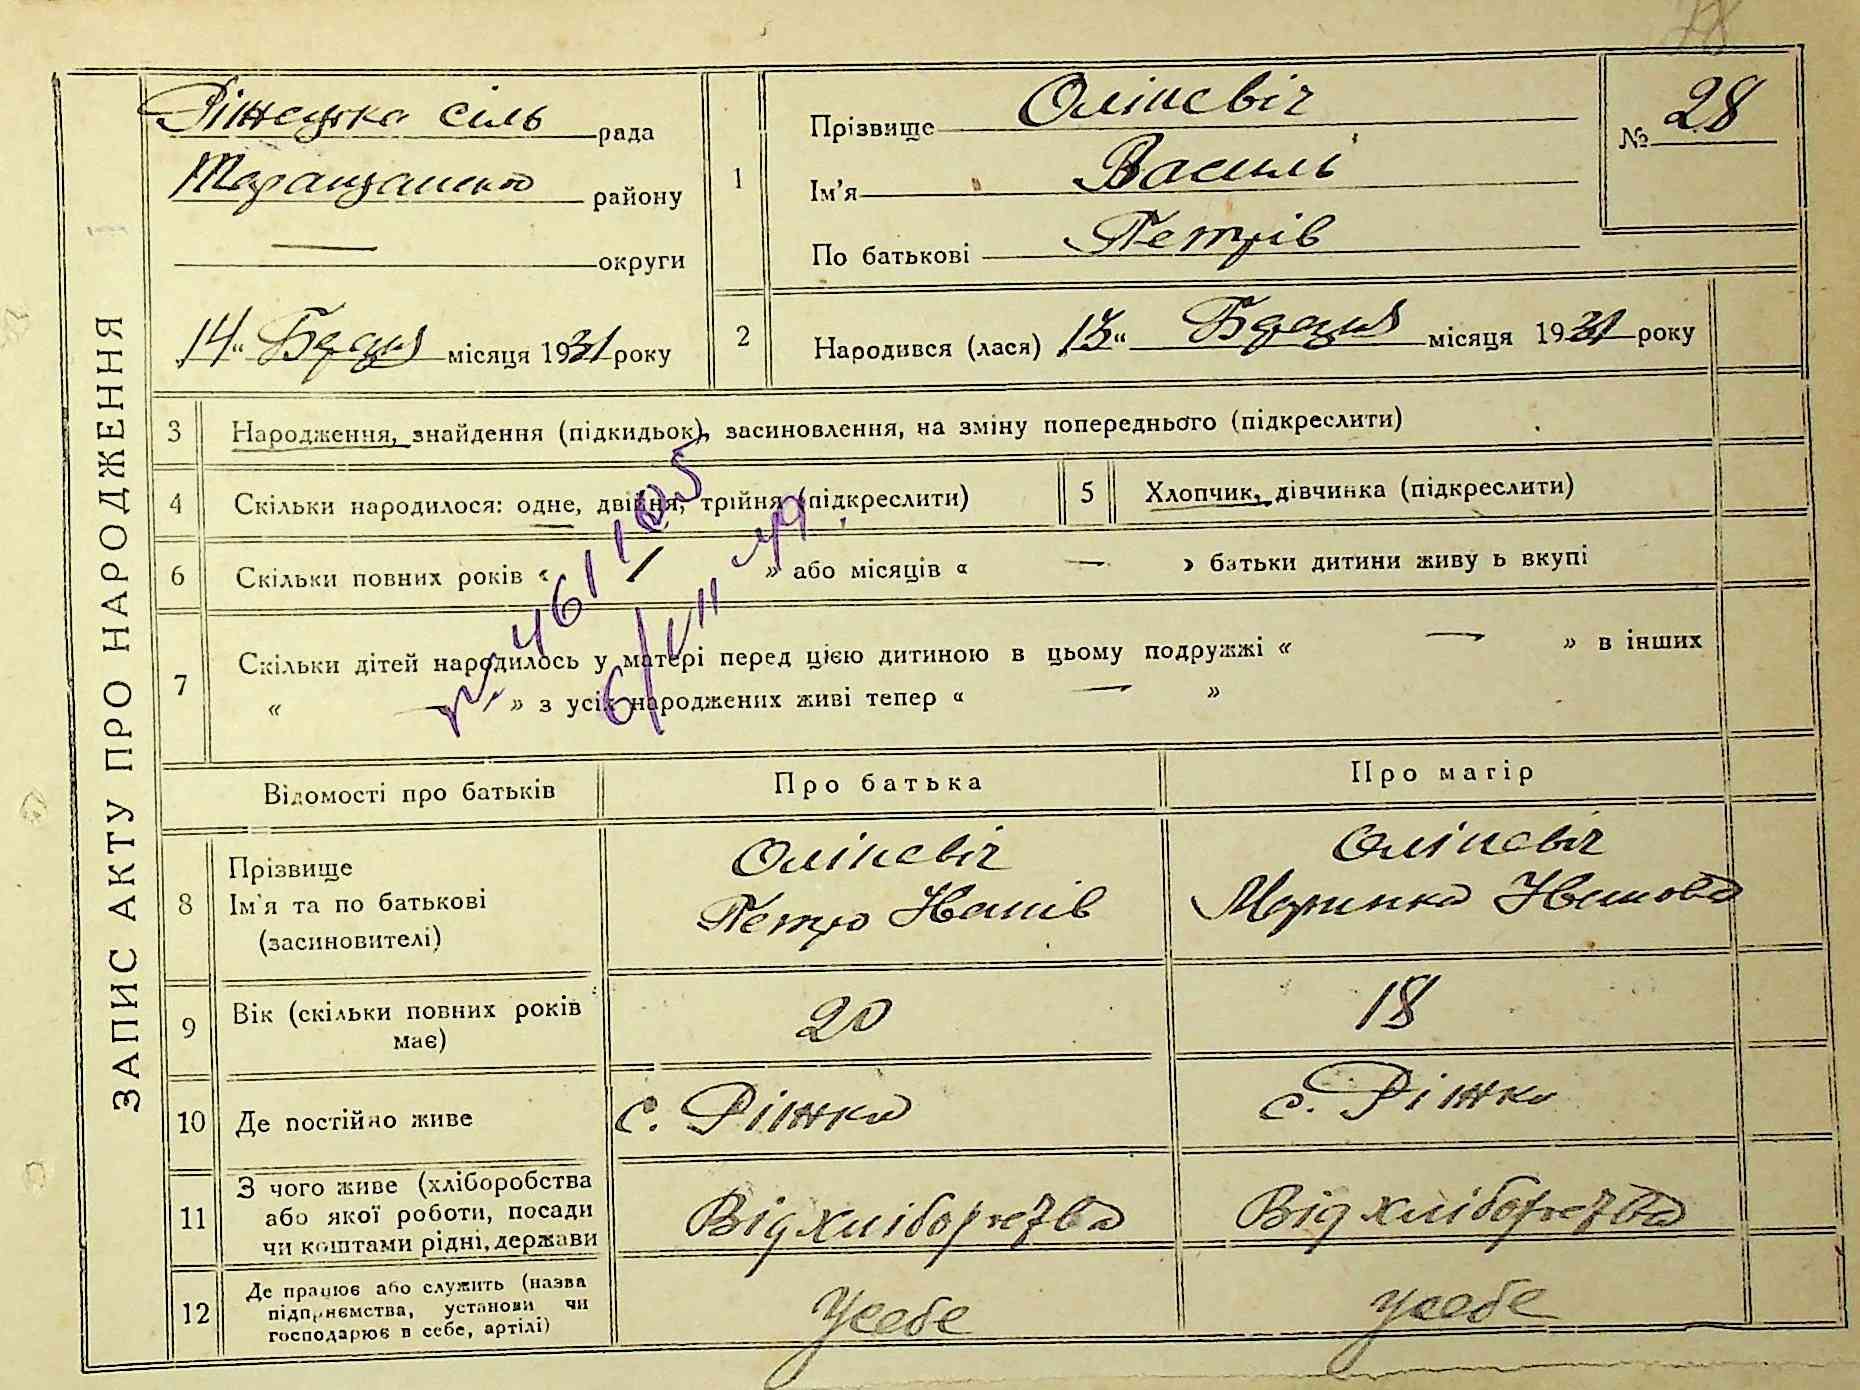 28
ЗАПИС АКТУ ПРО НАРОДЖЕННЯ
Ріжецька сіль рада
Таращанськ району
— округи
„14“ Березня місяця 1931 року
1
Прізвище Оліневіч
Ім'я Василь
По батькові Петрів
№ 28
2 Народився (лася) „13“ Березня місяця 1931 року
3 Народження, знайдення (підкидьок), засиновлення, на зміну попереднього (підкреслити)
4 Скільки народилося: одне, двійня, трійня (підкреслити)
5 Хлопчик, дівчинка (підкреслити)
6 Скільки повних років « — » або місяців « — » батьки дитини живу ь вкупі
7 Скільки дітей народилось у матері перед цією дитиною в цьому подружжі « — » в інших
« — » з усіх народжених живі тепер « — »
6/VII 49
Відомості про батьків
Про батька
Про матір
8 Прізвище
Ім'я та по батькові
(засиновителі)
Оліневіч
Петро Иванів
Оліневіч
Маринка Иванова
9 Вік (скільки повних років
має)
20
18
10 Де постійно живе
с. Ріжки
с. Ріжки
11 З чого живе (хліборобства
або якої роботи, посади
чи коштами рідні, держави
Від хліборобства
Від хліборобства
12 Де працює або служить (назва
підприємства, установи чи
господарює в себе, артілі)
У себе
У себе